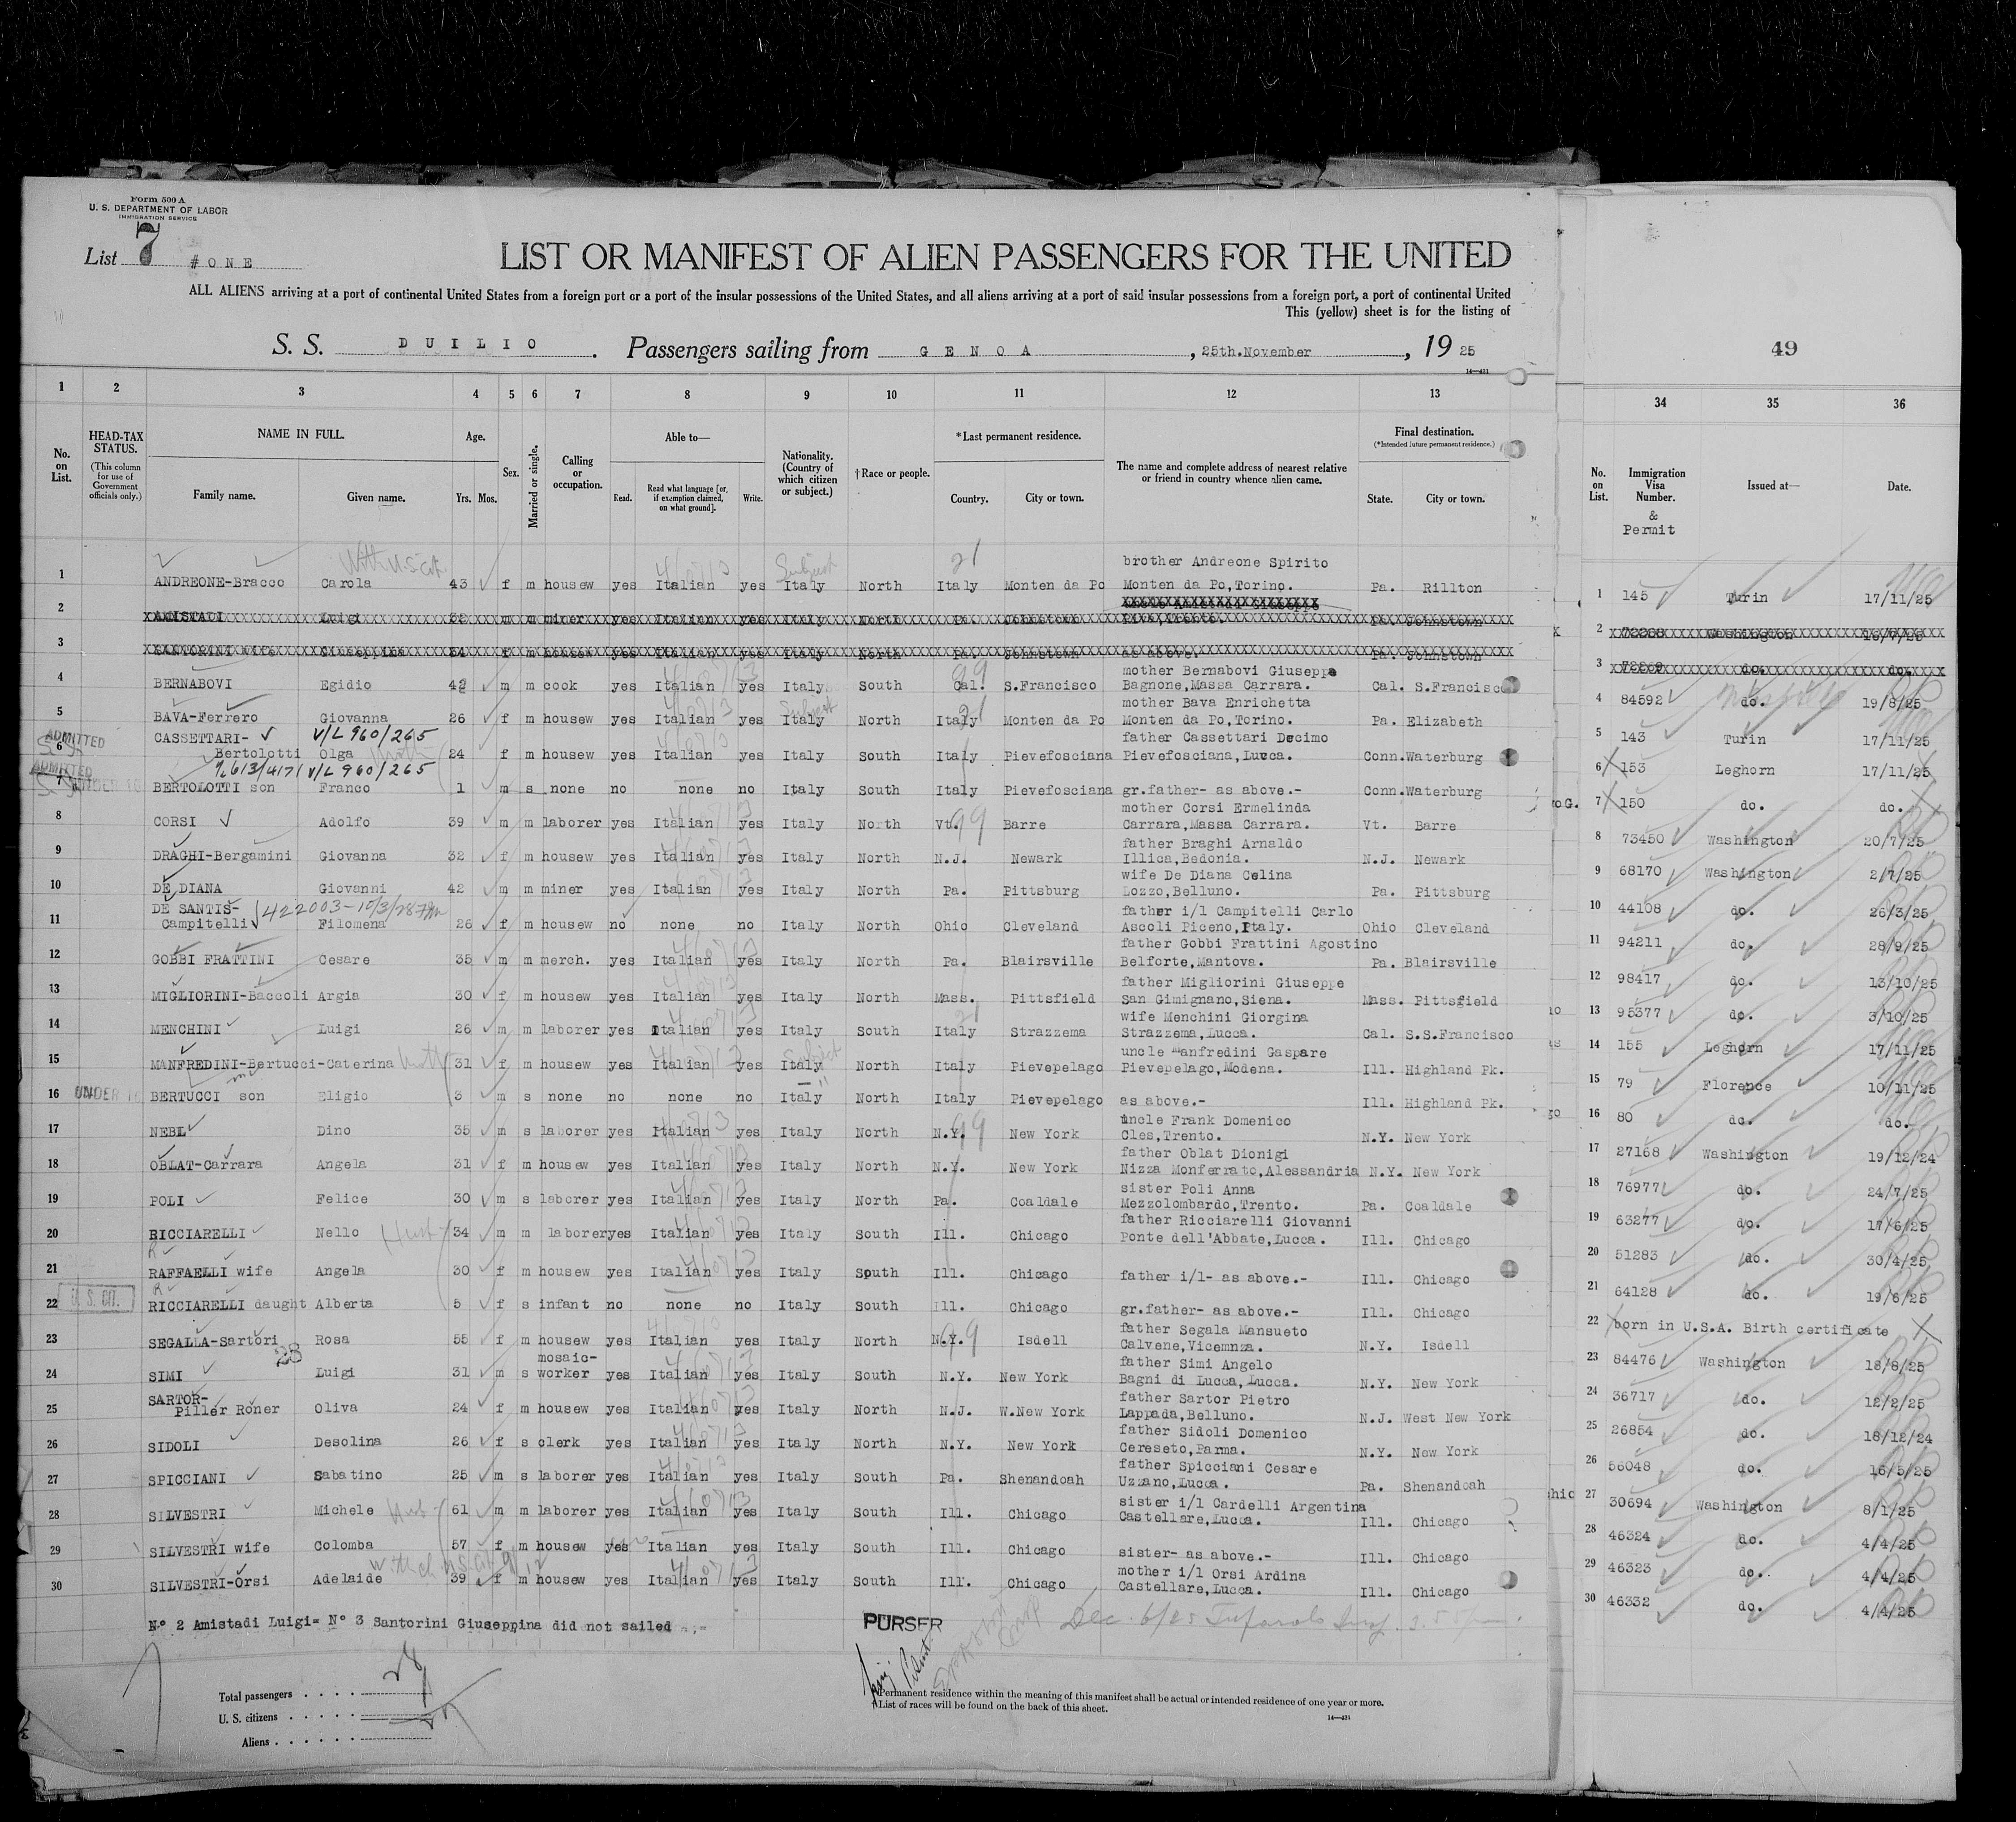 Form 500 A
U. S. DEPARTMENT OF LABOR
IMMIGRATION SERVICE
List 7 #ONE
LIST OR MANIFEST OF ALIEN PASSENGERS FOR THE UNITED
ALL ALIENS arriving at a port of continental United States from a foreign port or a port of the insular possessions of the United States, and all aliens arriving at a port of said insular possessions from a foreign port, a port of continental United
This (yellow) sheet is for the listing of
S. S. DUILIO. Passengers sailing from GENOA, 25th.November, 19 25
14—431
49
1 2 3 4 5 6 7 8 9 10 11 12 13 34 35 36
No. on List.
HEAD-TAX STATUS. (This column for use of Government officials only.)
NAME IN FULL.
Family name. Given name.
Age. Yrs. Mos.
Sex.
Married or single.
Calling or occupation.
Able to—
Read. Read what language [or, if exemption claimed, on what ground]. Write.
Nationality. (Country of which citizen or subject.)
†Race or people.
*Last permanent residence.
Country. City or town.
The name and complete address of nearest relative or friend in country whence alien came.
Final destination.
(*Intended future permanent residence.)
State. City or town.
No. on List. Immigration Visa Number. & Permit Issued at— Date.
With U.S. cit
21
Subject
brother Andreone Spirito
1 ANDREONE-Bracco Carola 43 f m housew yes Italian yes Italy North Italy Monten da Po Monten da Po,Torino. Pa. Rillton 1 145 Turin 17/11/25
2 AMISTADI Luigi m m miner yes Italian yes Italy North Pa. Johnstown Riva,Trento. Pa. Johnstown 2 Washington
3 SANTORINI wife Giuseppina f m housew yes Italian yes Italy North Pa. Johnstown as above. Pa. Johnstown 3 do. do.
mother Bernabovi Giuseppe
4 BERNABOVI Egidio 42 m m cook yes Italian yes Italy South Cal. S.Francisco Bagnone,Massa Carrara. Cal. S.Francisco 4 84592 do. 19/8/25
mother Bava Enrichetta
5 BAVA-Ferrero Giovanna 26 f m housew yes Italian yes Italy North Italy Monten da Po Monten da Po,Torino. Pa. Elizabeth 5 143 Turin 17/11/25
ADMITTED
CASSETTARI- V/L 960/265 father Cassettari Decimo
6 Bertolotti Olga 24 f m housew yes Italian yes Italy South Italy Pievefosciana Pievefosciana,Lucca. Conn.Waterburg 6 153 Leghorn 17/11/25
ADMITTED
V/L 960/265
7 BERTOLOTTI son Franco 1 m s none no none no Italy South Italy Pievefosciana gr.father- as above.- Conn.Waterburg 7 150 do. do.
mother Corsi Ermelinda
8 CORSI Adolfo 39 m m laborer yes Italian yes Italy North Vt. Barre Carrara,Massa Carrara. Vt. Barre 8 73450 Washington 20/7/25
father Braghi Arnaldo
9 DRAGHI-Bergamini Giovanna 32 f m housew yes Italian yes Italy North N.J. Newark Illica,Bedonia. N.J. Newark 9 68170 Washington 2/7/25
wife De Diana Celina
10 DE DIANA Giovanni 42 m m miner yes Italian yes Italy North Pa. Pittsburg Lozzo,Belluno. Pa. Pittsburg 10 44108 do. 26/3/25
DE SANTIS- father i/l Campitelli Carlo
11 Campitelli Filomena 26 f m housew no none no Italy North Ohio Cleveland Ascoli Piceno,Italy. Ohio Cleveland 11 94211 do. 28/9/25
father Gobbi Frattini Agostino
12 GOBBI FRATTINI Cesare 35 m m merch. yes Italian yes Italy North Pa. Blairsville Belforte,Mantova. Pa. Blairsville 12 98417 do. 13/10/25
father Migliorini Giuseppe
13 MIGLIORINI-Baccoli Argia 30 f m housew yes Italian yes Italy North Mass. Pittsfield San Gimignano,Siena. Mass. Pittsfield 13 95377 do. 3/10/25
wife Menchini Giorgina
14 MENCHINI Luigi 26 m m laborer yes Italian yes Italy South Italy Strazzema Strazzema,Lucca. Cal. S.S.Francisco 14 155 Leghorn 17/11/25
uncle Manfredini Gaspare
15 MANFREDINI-Bertucci-Caterina 31 f m housew yes Italian yes Italy North Italy Pievepelago Pievepelago,Modena. Ill. Highland Pk. 15 79 Florence 10/11/25
16 UNDER BERTUCCI son Eligio 3 m s none no none no Italy North Italy Pievepelago as above.- Ill. Highland Pk. 16 80 do. do.
uncle Frank Domenico
17 NEBL Dino 35 m s laborer yes Italian yes Italy North N.Y. New York Cles,Trento. N.Y. New York 17 27168 Washington 19/12/24
father Oblat Dionigi
18 OBLAT-Carrara Angela 31 f m housew yes Italian yes Italy North N.Y. New York Nizza Monferrato,Alessandria N.Y. New York 18 76977 do. 24/7/25
sister Poli Anna
19 POLI Felice 30 m s laborer yes Italian yes Italy North Pa. Coaldale Mezzolombardo,Trento. Pa. Coaldale 19 63277 do. 17/6/25
father Ricciarelli Giovanni
20 RICCIARELLI Nello 34 m m laborer yes Italian yes Italy South Ill. Chicago Ponte dell'Abbate,Lucca. Ill. Chicago 20 51283 do. 30/4/25
21 RAFFAELLI wife Angela 30 f m housew yes Italian yes Italy South Ill. Chicago father i/l- as above.- Ill. Chicago 21 64128 do. 19/6/25
22 U. S. CIT. RICCIARELLI daught Alberta 5 f s infant no none no Italy South Ill. Chicago gr.father- as above.- Ill. Chicago 22 born in U.S.A. Birth certificate
father Segala Mansueto
23 SEGALLA-Sartori Rosa 55 f m housew yes Italian yes Italy North N.Y. Isdell Calvene,Vicemnza. N.Y. Isdell 23 84476 Washington 18/8/25
mosaic- father Simi Angelo
24 SIMI Luigi 31 m s worker yes Italian yes Italy South N.Y. New York Bagni di Lucca,Lucca. N.Y. New York 24 36717 do. 12/2/25
SARTOR- father Sartor Pietro
25 Piller Roner Oliva 24 f m housew yes Italian yes Italy North N.J. W.New York Lappada,Belluno. N.J. West New York 25 26854 do. 18/12/24
father Sidoli Domenico
26 SIDOLI Desolina 26 f s clerk yes Italian yes Italy North N.Y. New York Cereseto,Parma. N.Y. New York 26 56048 do. 16/5/25
father Spicciani Cesare
27 SPICCIANI Sabatino 25 m s laborer yes Italian yes Italy South Pa. Shenandoah Uzzano,Lucca. Pa. Shenandoah 27 30694 Washington 8/1/25
sister i/l Cardelli Argentina
28 SILVESTRI Michele 61 m m laborer yes Italian yes Italy South Ill. Chicago Castellare,Lucca. Ill. Chicago 28 46324 do. 4/4/25
29 SILVESTRI wife Colomba 57 f m housew yes Italian yes Italy South Ill. Chicago sister- as above.- Ill. Chicago 29 46323 do. 4/4/25
mother i/l Orsi Ardina
30 SILVESTRI-Orsi Adelaide 39 f m housew yes Italian yes Italy South Ill. Chicago Castellare,Lucca. Ill. Chicago 30 46332 do. 4/4/25
N° 2 Amistadi Luigi= N° 3 Santorini Giuseppina did not sailed
PURSER
Total passengers . . . . 28
U. S. citizens . . . . .
Aliens . . . . . .
*Permanent residence within the meaning of this manifest shall be actual or intended residence of one year or more.
†List of races will be found on the back of this sheet.
14—431